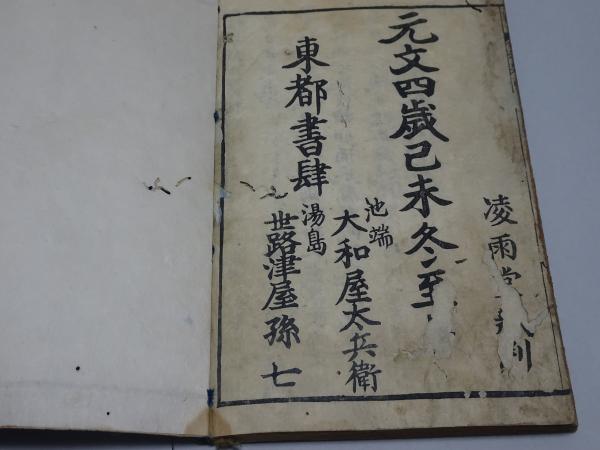 凌雨堂
元文四歳己未冬至
東都書肆
池端
大和屋太兵衛
湯島
世路津屋孫七